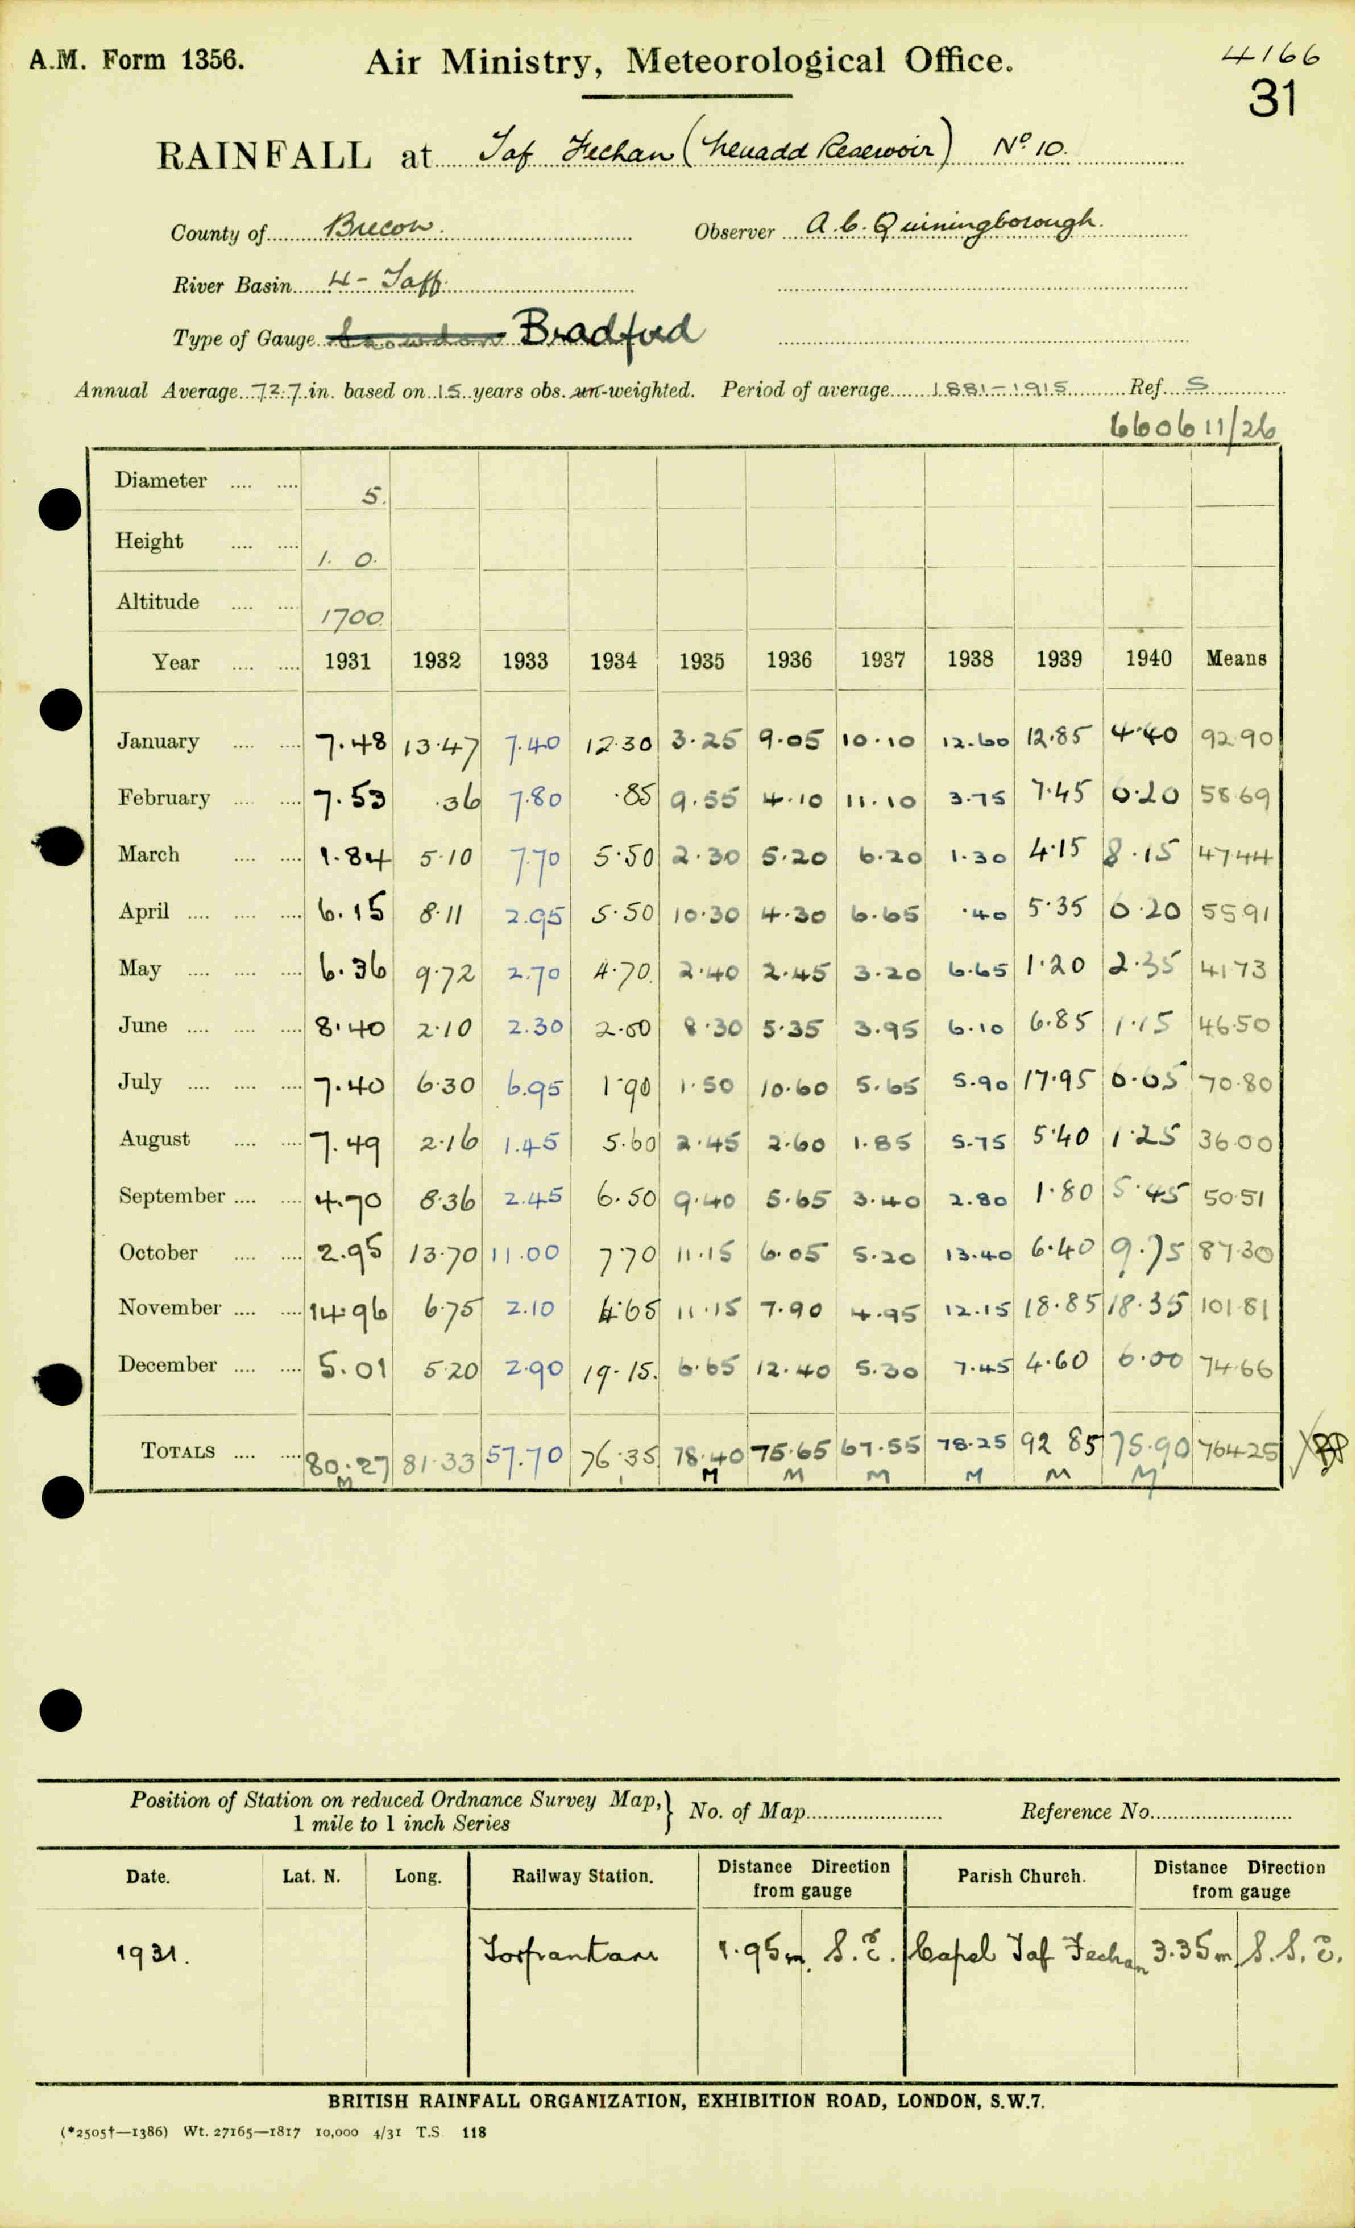 A.M. Form 1356. Air Ministry, Meteorological Office. 4166
31
RAINFALL at Taf Fechan (Neuadd Reservoir) No 10.
County of Brecon. Observer A.C. Quiningborough.
River Basin 4 - Taff.
Type of Gauge Snowdon Bradford
Annual Average 72.7 in. based on 15 years obs. un-weighted. Period of average 1881-1915 Ref. S
6606 11/26
Diameter .... .... 5.
Height .... .... 1. 0.
Altitude .... .... 1700.
Year .... .... 1931 1932 1933 1934 1935 1936 1937 1938 1939 1940 Means
January .... .... 7.48 13.47 7.40 12.30 3.25 9.05 10.10 12.60 12.85 4.40 92.90
February .... .... 7.53 .36 7.80 .85 9.55 4.10 11.10 3.75 7.45 6.20 58.69
March .... .... 1.84 5.10 7.70 5.50 2.30 5.20 6.20 1.30 4.15 8.15 47.44
April .... .... .... 6.15 8.11 2.95 5.50 10.30 4.30 6.65 .40 5.35 6.20 55.91
May .... .... .... 6.36 9.72 2.70 4.70 2.40 2.45 3.20 6.65 1.20 2.35 41.73
June .... .... .... 8.40 2.10 2.30 2.00 8.30 5.35 3.95 6.10 6.85 1.15 46.50
July .... .... .... 7.40 6.30 6.95 1.90 1.50 10.60 5.65 5.90 17.95 6.65 70.80
August .... .... 7.49 2.16 1.45 5.60 2.45 2.60 1.85 5.75 5.40 1.25 36.00
September .... .... 4.70 8.36 2.45 6.50 9.40 5.65 3.40 2.80 1.80 5.45 50.51
October .... .... 2.95 13.70 11.00 7.70 11.15 6.05 5.20 13.40 6.40 9.75 87.30
November .... .... 14.96 6.75 2.10 4.65 11.15 7.90 4.95 12.15 18.85 18.35 101.81
December .... .... 5.01 5.20 2.90 19.15. 6.65 12.40 5.30 7.45 4.60 6.00 74.66
TOTALS .... .... 80.27 81.33 57.70 76.35 78.40 75.65 67.55 78.25 92 85 75.90 764.25
M M M M M M M
Position of Station on reduced Ordnance Survey Map, 1 mile to 1 inch Series } No. of Map Reference No.
Date. Lat. N. Long. Railway Station. Distance Direction from gauge Parish Church. Distance Direction from gauge
1931. Torpantau 1.95m. S.E. Capel Taf Fechan 3.35m. S.S.E.
BRITISH RAINFALL ORGANIZATION, EXHIBITION ROAD, LONDON, S.W.7.
(*2505†—1386) Wt. 27165—1817 10,000 4/31 T.S. 118